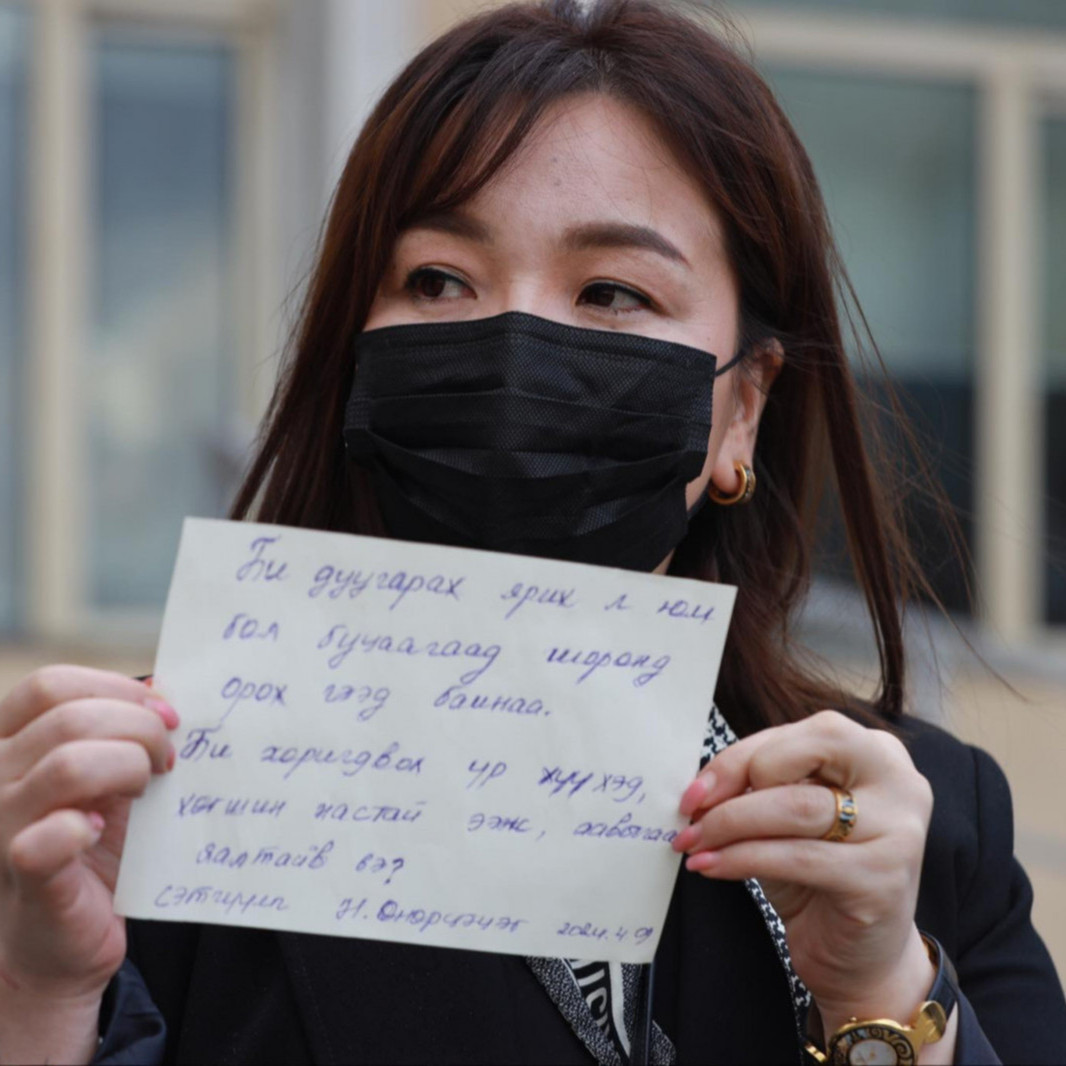 Би дуугарах ярих л юм
бол буцаагаад шоронд
орох гээд байнаа.
Би хоригдвол үр хүүхэд,
хөгшин настай ээж, аавыгаа
яалтайв вэ?
сэтгүүлч Н.Өнөрцэцэг 2024.4.09